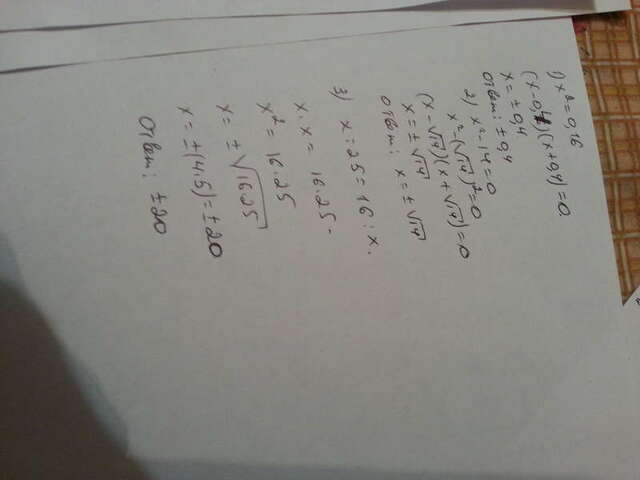 1) x² = 0,16
(x-0,4)(x+0,4)=0
x = ± 0,4
Ответ: ± 0,4
2) x²-14=0
x²-(√14)²=0
(x-√14)(x+√14)=0
x = ± √14
Ответ: x = ± √14
3) x : 25 = 16 : x.
x · x = 16 · 25 ·
x² = 16 · 25
x = ± √16·25
x = ±(4·5)=±20
Ответ: ±20